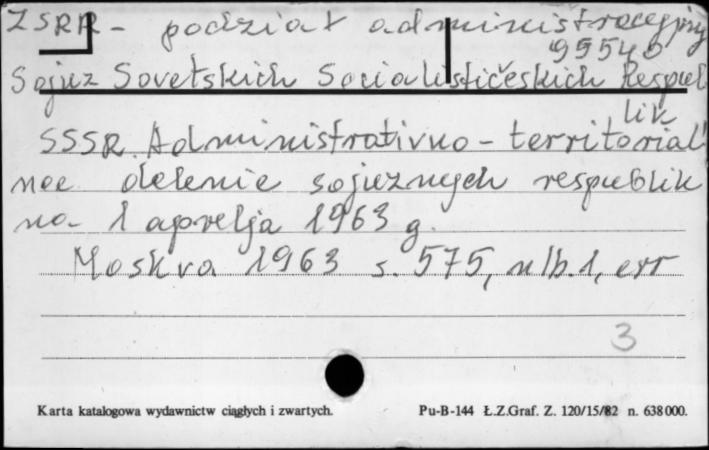 ZSRR - podział administracyjny
99540
Sojuz Sovetskich Socialističeskich Respub
lik
SSSR. Administrativno - territorial'
noe delenie sojuznych respublik
na 1 aprelja 1963 g.
Moskva 1963 s. 575, nlb. 1, err
3
Karta katalogowa wydawnictw ciągłych i zwartych.
Pu-B-144 Ł.Z.Graf. Z. 120/15/82 n. 638000.